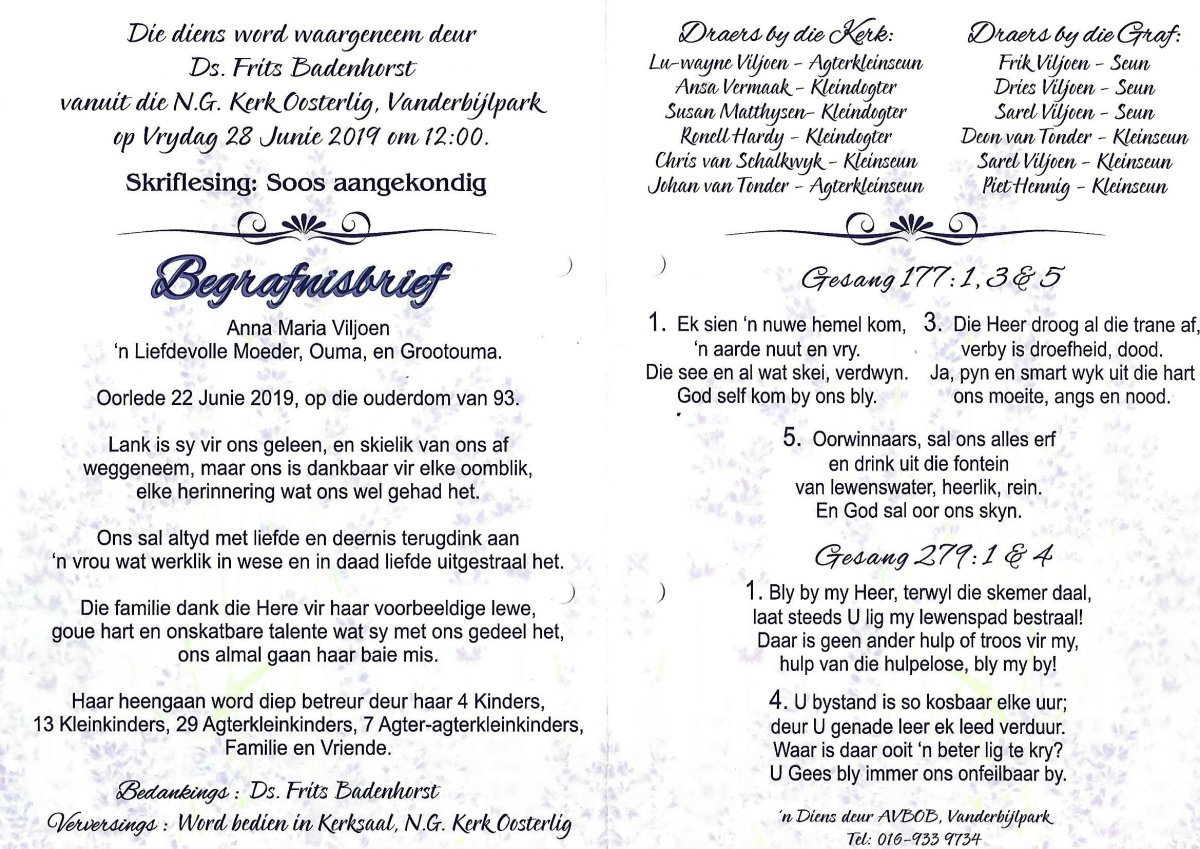 Die diens word waargeneem deur
Ds. Frits Badenhorst
vanuit die N.G. Kerk Oosterlig, Vanderbijlpark
op Vrydag 28 Junie 2019 om 12:00.
Skriflesing: Soos aangekondig
Begrafnisbrief
Anna Maria Viljoen
‘n Liefdevolle Moeder, Ouma, en Grootouma.
Oorlede 22 Junie 2019, op die ouderdom van 93.
Lank is sy vir ons geleen, en skielik van ons af
weggeneem, maar ons is dankbaar vir elke oomblik,
elke herinnering wat ons wel gehad het.
Ons sal altyd met liefde en deernis terugdink aan
‘n vrou wat werklik in wese en in daad liefde uitgestraal het.
Die familie dank die Here vir haar voorbeeldige lewe,
goue hart en onskatbare talente wat sy met ons gedeel het,
ons almal gaan haar baie mis.
Haar heengaan word diep betreur deur haar 4 Kinders,
13 Kleinkinders, 29 Agterkleinkinders, 7 Agter-agterkleinkinders,
Familie en Vriende.
Bedankings : Ds. Frits Badenhorst
Verversings : Word bedien in Kerksaal, N.G. Kerk Oosterlig
Draers by die Kerk:
Lu-wayne Viljoen - Agterkleinseun
Ansa Vermaak - Kleindogter
Susan Matthysen- Kleindogter
Ronell Hardy - Kleindogter
Chris van Schalkwyk - Kleinseun
Johan van Tonder - Agterkleinseun
Draers by die Graf:
Frik Viljoen - Seun
Dries Viljoen - Seun
Sarel Viljoen - Seun
Deon van Tonder - Kleinseun
Sarel Viljoen - Kleinseun
Piet Hennig - Kleinseun
Gesang 177:1, 3 & 5
1. Ek sien ‘n nuwe hemel kom,
‘n aarde nuut en vry.
Die see en al wat skei, verdwyn.
God self kom by ons bly.
3. Die Heer droog al die trane af,
verby is droefheid, dood.
Ja, pyn en smart wyk uit die hart
ons moeite, angs en nood.
5. Oorwinnaars, sal ons alles erf
en drink uit die fontein
van lewenswater, heerlik, rein.
En God sal oor ons skyn.
Gesang 279:1 & 4
1. Bly by my Heer, terwyl die skemer daal,
laat steeds U lig my lewenspad bestraal!
Daar is geen ander hulp of troos vir my,
hulp van die hulpelose, bly my by!
4. U bystand is so kosbaar elke uur;
deur U genade leer ek leed verduur.
Waar is daar ooit ‘n beter lig te kry?
U Gees bly immer ons onfeilbaar by.
‘n Diens deur AVBOB, Vanderbijlpark
Tel: 016-933 9734